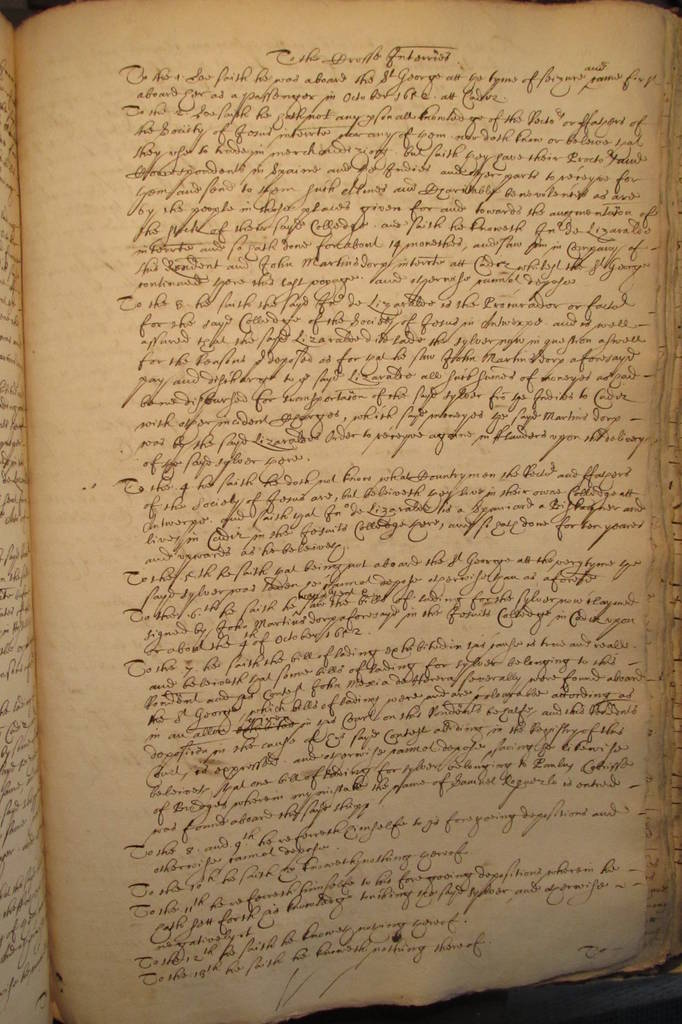 To the Crosse Interries.
To the 1. hee saith he was aboard the St George att the tyme of seizure and came first
aboard her as a passenger in October 1652. att Cadiz
To the 2. hee saith he hath not any personall knowledge of the Rector or ffathers of
the Society of Jesus interrte nor any of them nor doth know or beleive that
they use to trade in merchandizing, but saith they have their Proctors and
Correspondents in Spaine and the Indies and other parts to receive for
them and send to them such Almes and Charitable benevolences as are
by the people in those places given for and towards the augmentation of
the of their sayd Colledge. and saith he knoweth Jno de Lizaralde
interrte and so hath done for about 14 monethes, and saw him in Company of
this Rendent and John Martinsdorp interrte att Cadiz whilest the St George
continued there this last voyage. and otherwise cannot depose
To the 3. he saith the sayd Jno de Lizaralde is the Procurador or factor
for the sayd Colledge of the Society of Jesus in Antwerpe. and is well
assured that the sayd Lizaralde did lade the sylver now in question aswell
for the reasons deposed as for that he saw John Martinsdorp aforesayd
pay and disburse to the sayd Lizaralde all such summes of moneyes as had
bene disbursed for transportation of the sayd sylver from the Indies to Cadiz
with other incident Charges, which sayd moneyes the sayd Martins dorp
was by the sayd Lizaraldes order to receive againe in fflanders upon the delivery
of the sayd sylver there.
To the 4. he saith he doth not know what Countrymen the Rector and ffathers
of the Society of Jesus are, but beleiveth they live in their owne Colledge att
Antwerpe. and saith that Jno de Lizaralde is a Spaniard a and
lives in Cadiz in the Jesuits Colledge there, and so hath done for ten yeares
and upwards as he beleives.
To the 5th he saith that being not aboard the St George att the very tyme the
sayd sylver was laden he cannot depose otherwise than as aforesd
To the 6th he saith he saw the bills of lading for the sylver now claymed
signed by John Martins dorp aforesayd in the Jesuits Colledge in Cadiz upon
or about the 4th of October 1652.
To the 7. he saith the bill of lading exhibited in this cause is true and reall.
and beleiveth that some bills of lading for sylver belonging to this
Rendent and his Contest John Mexia de Herrera severally were found aboard
the St George, which bills of lading were and are colourable according as
in an allon in this Court on this Rendents behalfe and this Rendents
deposition in the cause of his sayd Contest abiding in the Registry of this
Court is expressed. and otherwise cannot depose saving he likewise
beleives that one bill of lading for sylver belonging to Paulus
of Bridges wherein by mistake the name of Samuel is entred
was found aboard the sayd shipp.
To the 8. and 9th he referreth himselfe to his foregoing depositions and
otherwise cannot depose.
To the 10th he saith he knoweth nothing thereof.
To the 11th he referreth himselfe to his foregoing depositions wherein he
hath sett forth his knowledge touching the sayd sylver, and otherwise
negatively.
To the 12th he saith he knowes nothing thereof.
To the 13th he saith he knoweth nothing thereof.
To